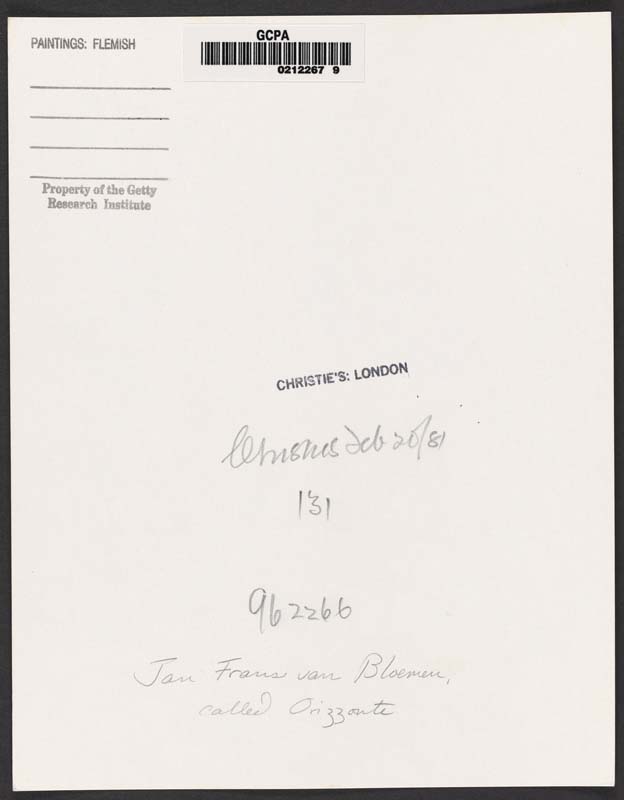 PAINTINGS: FLEMISH
GCPA
0212267 9
Property of the Getty
Research Institute
CHRISTIE'S: LONDON
Christies Feb 20/81
131
962266
Jan Frans van Bloemen,
called Orizzonte